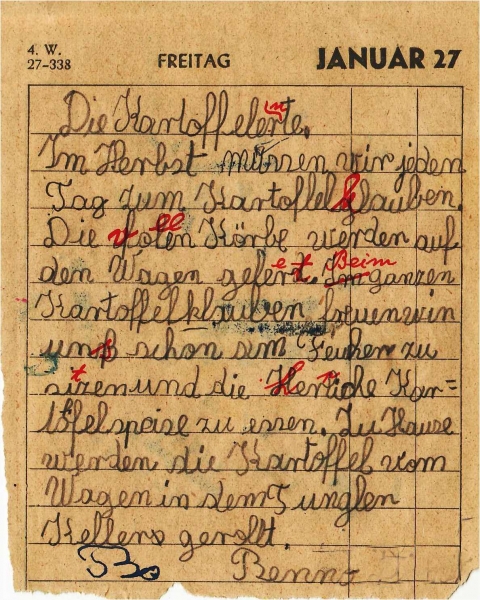 4. W.
27-338
FREITAG
JANUAR 27
Die Kartoffelernte.
Im Herbst müssen wir jeden
Tag zum Kartoffel klauben.
Die vollen Körbe werden auf
den Wagen gelert. Beim ganzen
Kartoffelklauben freuen wir
uns schon am
zu
sitzen und die Kar=
toffelspeise zu essen. Zu Hause
werden die Kartoffel vom
Wagen in dem
Kellers gerollt.
Benno